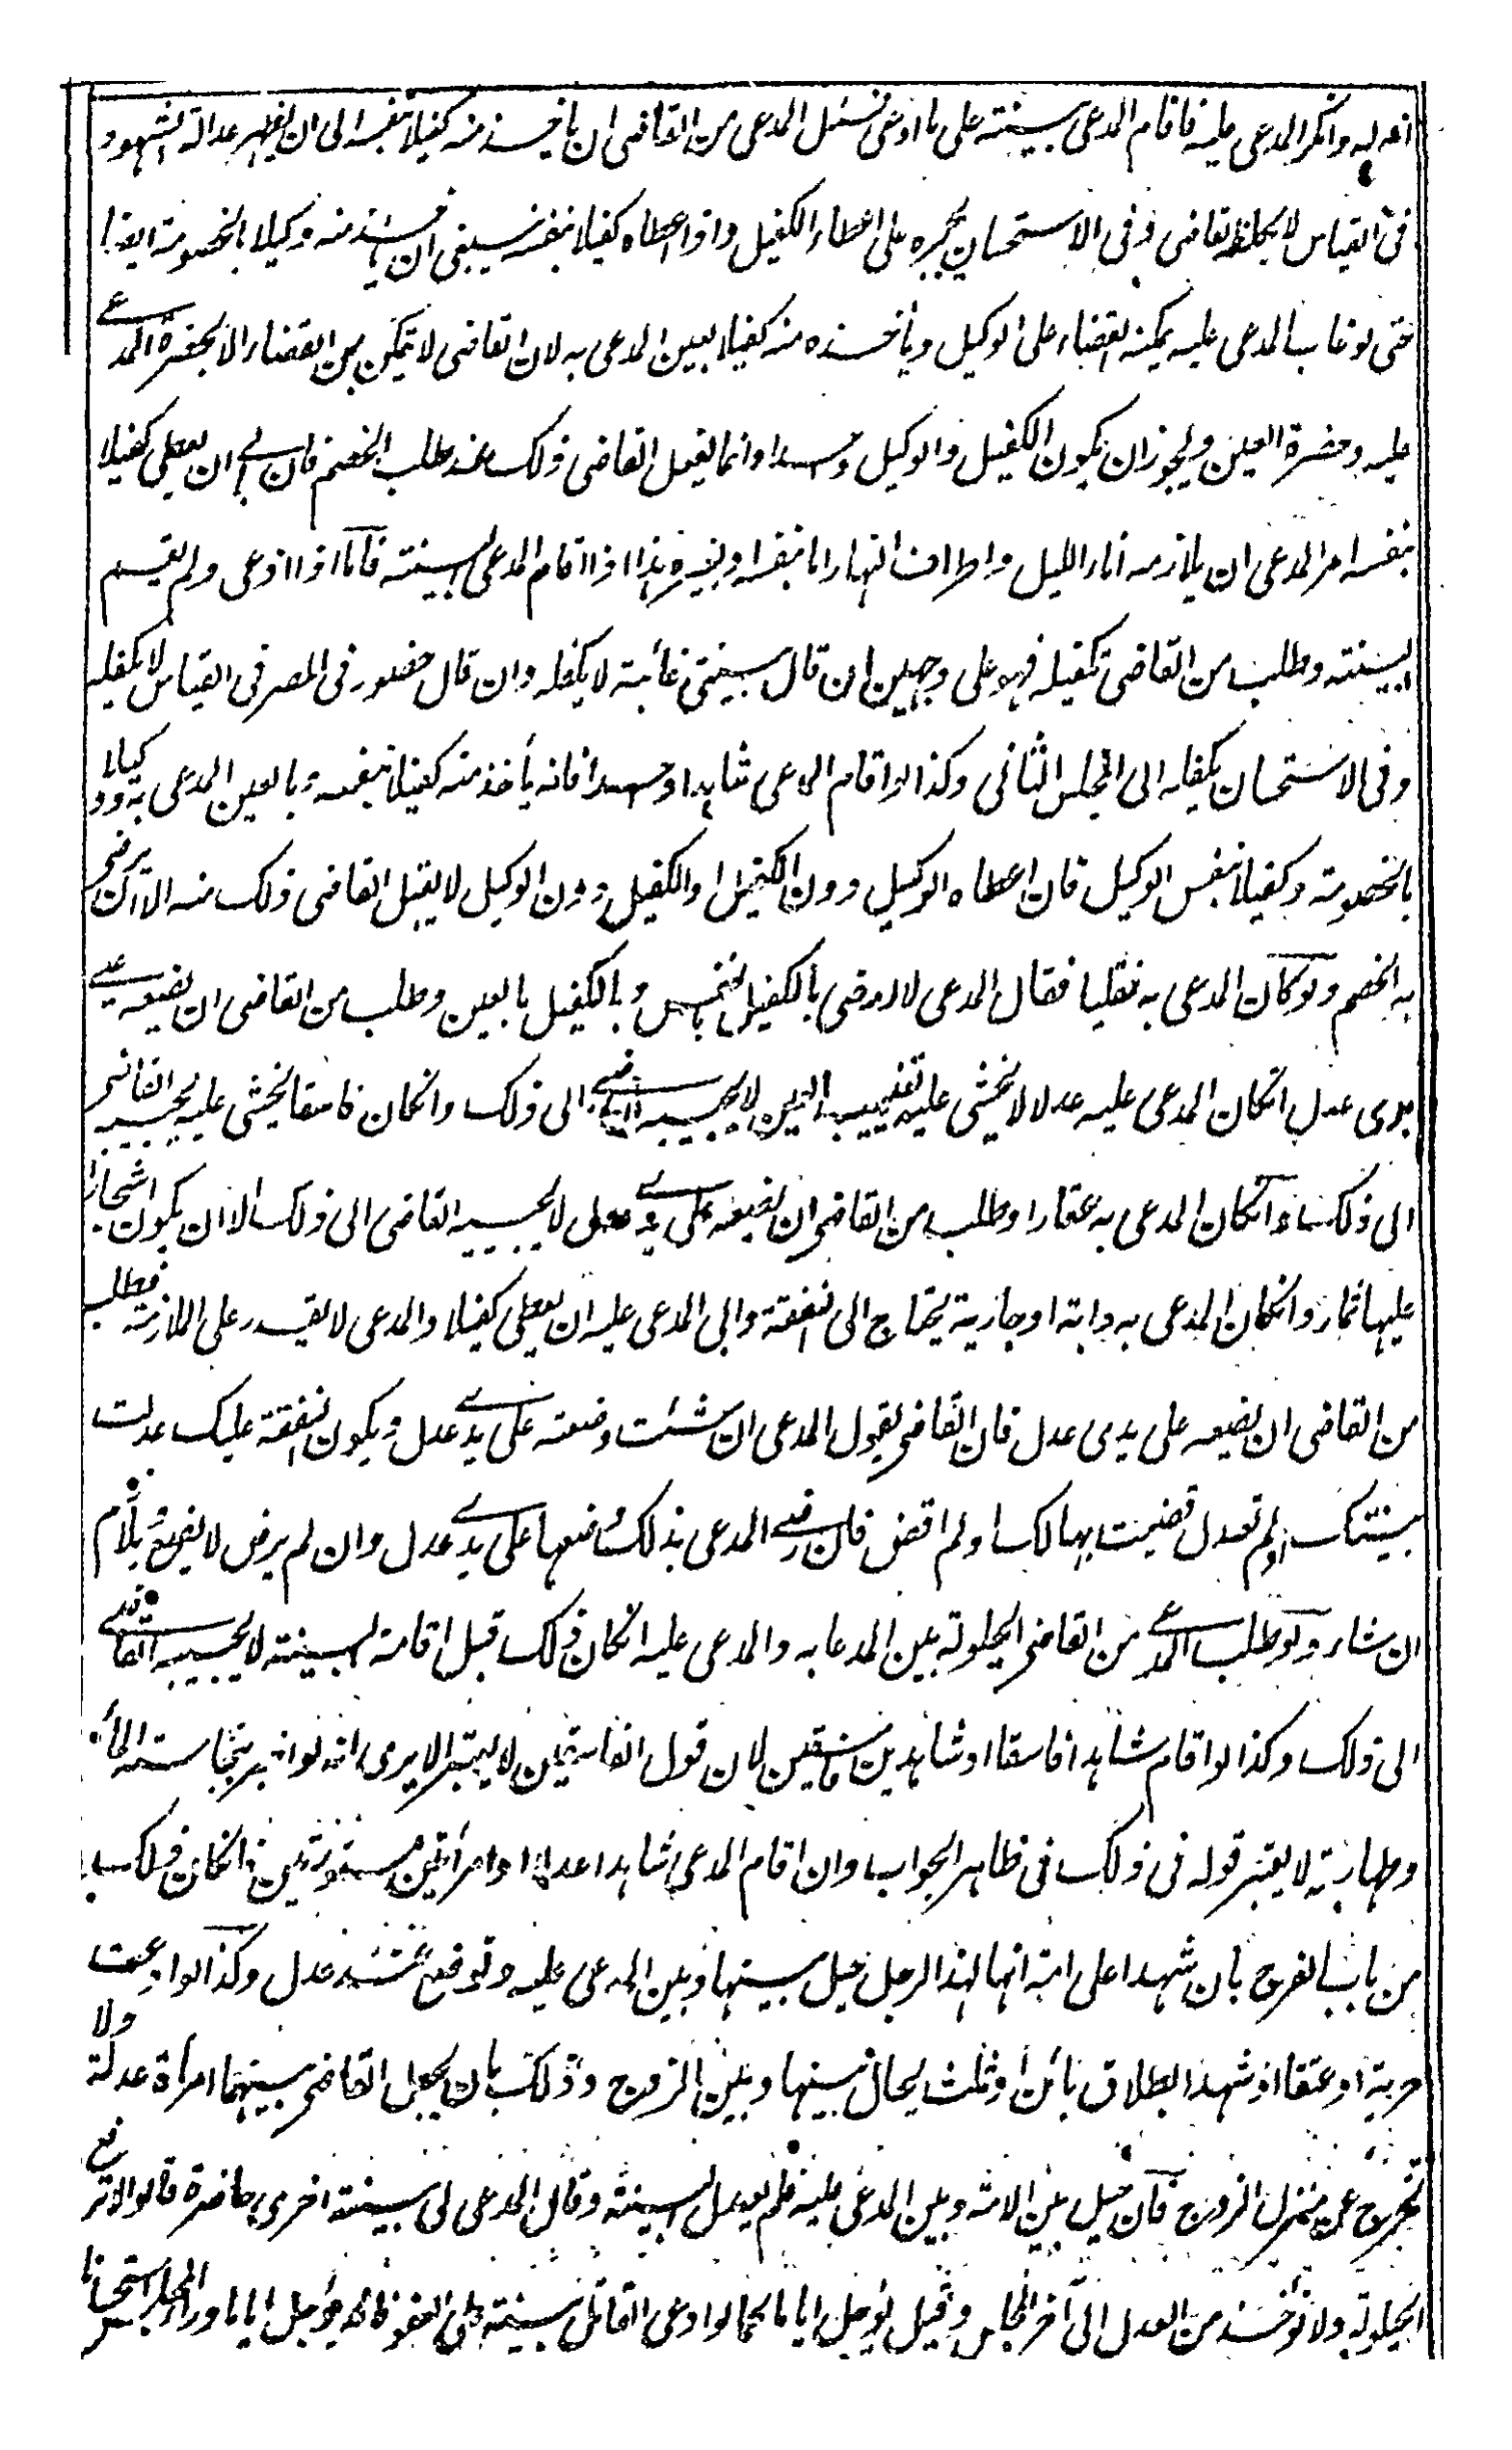 انه له وانكر المدعى عليه فاقام المدعى بينته على ما ادعى فسئل المدعى من القاضى ان ياخذ منه كفيلا بنفسه الى ان يظهر عدالة الشهود
ففى القياس لا يجيبه القاضى وفى الاستحسان يجبره على اعطاء الكفيل واذا اعطاه كفيلا بنفسه ينبغى ان ياخذ منه وكيلا بالخصومة ايضا
حتى لو غاب المدعى عليه يمكنه القضاء على الوكيل ويأخذه منه كفيلا بعين المدعى به لان القاضى لا يتمكن من القضاء الا بحضرة المدعى
عليه وحضرة العين ويجوز ان يكون الكفيل والوكيل واحدا وانما يفعل القاضى ذلك عند طلب الخصم فان ابى ان يعطى كفيلا
بنفسه امر المدعى ان يلازمه اناء الليل واطراف النهار اما بنفسه او بغيره هذا اذا اقام المدعى البينته فاما اذا ادعى ولم يقم
البينته وطلب من القاضى تكفيله فهو على وجهين ان قال بينتى غائبة لا يكفله وان قال حضور فى المصر فى القياس لا يكفله
وفى الاستحسان يكفله الى المجلس الثانى وكذا لو اقام المدعى شاهدا واحدا فانه يأخذ منه كفيلا بنفسه وبالعين المدعى به ووكيلا
بالخصومة وكفيلا بنفس الوكيل فان اعطاه الوكيل دون الكفيل او الكفيل دون الوكيل لا يقبل القاضى ذلك منه الا ان يرضى
به الخصم ولو كان المدعى به نقليا فقال المدعى لا ارضى بالكفيل بالنفس وبالكفيل بالعين وطلب من القاضى ان يضعه على
يدى عدل انكان المدعى عليه عدلا لا يخشى عليه تغييب العين لا يجيبه القاضى الى ذلك وانكان فاسقا يخشى عليه يجيبه القاضى
الى ذلك وانكان المدعى به عقارا وطلب من القاضى ان يضعه على يدى عدل لا يجيبه القاضى الى ذلك الا ان يكون اشجارا
عليها ثمار وانكان المدعى به دابة او جارية يحتاج الى النفقة وابى المدعى عليه ان يعطى كفيلا والمدعى لا يقدر على الملازمة فطلب
من القاضى ان يضعه على يدى عدل فان القاضى يقول المدعى ان شئت وضعته على يدى عدل ويكون النفقة عليك عدلت
بينتك او لم تعدل قضيت بها لك او لم اقض فان رضى المدعى بذلك وضعها على يدى عدل وان لم يرض لا يضع ويلازم
ان شاء ولو طلب المدعى من القاضى الحيلولة بين المدعا به والمدعى عليه انكان ذلك قبل اقامة البينته لا يجيبه القاضى
الى ذلك وكذا لو اقام شاهدا فاسقا او شاهدين فاسقين لان قول الفاسقين لا يعتبر الا يرى انه لو اخبر بنجاسة الماء
وطهارته لا يعتبر قوله فى ذلك فى ظاهر الجواب وان اقام المدعى شاهدا عدلا او امرأتين مستورتين فانكان ذلك
من باب الفرج بان شهدا على امة انها لهذا الرجل حيل بينها وبين المدعى عليه وتوضع عند عدل وكذا لو ادعت
حرية او عتقا او شهدا بطلاق بائن او ثلث يحال بينها وبين الزوج وذلك بان يجعل القاضى بينهما امراة عدلة ولا
تخرج عن منزل الزوج فان حيل بين الامة وبين المدعى عليه فلم يعدل البينته وقال المدعى لى بينته اخرى حاضرة قالوا لا ترفع
الحيلولة ولا تؤخذ من العدل الى آخر المجلس وقيل يؤجل اياما كما لو ادعى القاتل بينته على العفو فانه يؤجل اياما وراء المجلس استحسانا